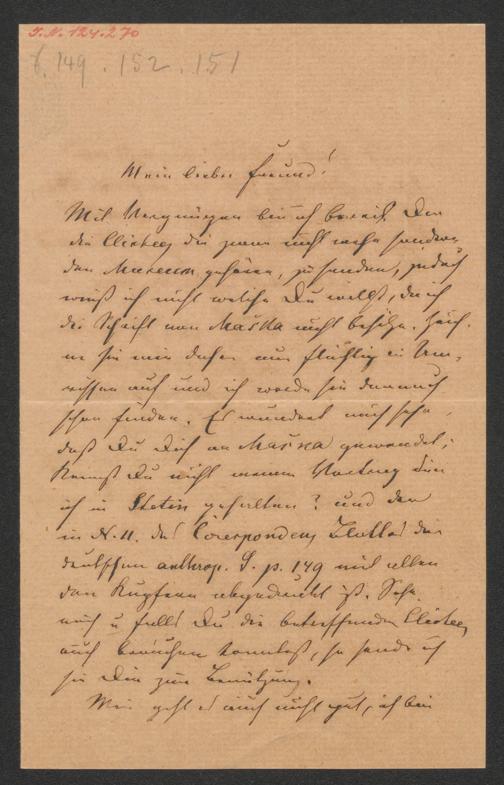 I.N. 124.270
149. 152. 151
Mein lieber Freund!
Mit Vergnügen bin ich bereit Dir
die Clichees die zwar nicht mehr sondern
dem Museum gehören, zu senden, jedoch
weiß ich nicht welche Du willst, da ich
die Schrift von Maška nicht besitze. Zeich-
ne sie mir daher nur flüchtig in Um-
rissen auf und ich werde sie darnach
schon finden. Es wundert mich sehr,
daß Du Dich an Maška gewendet;
kennst Du nicht meinen Vortrag den
ich in Stetin gehalten? und der
in N. 11. des Correspondenz Blattes der
deutschen anthrop. G. p. 149 mit allen
den Kupfern abgedruckt ist. Sehe
nach u falls Du die betreffenden Clichees
auch brauchen könntest, so sende ich
sie Dir zur Benützung.
Mir geht es auch nicht gut, ich bin